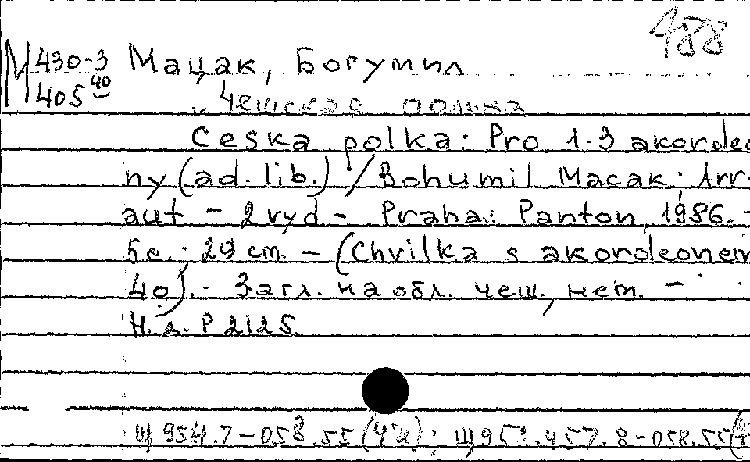 488
М 430-3 Мацак, Богумил
405 40 Чешская полька
Ceska polka: Pro 1-3 akordeo
ny (ad. lib.) / Bohumil Macak; Irr.
aut - 2 vyd - Praha: Panton, 1986.-
5 c.; 29 cm. - (Chvilka s akordeonem
40). - Загл. на обл. чеш., нем. -
Н. д. Р 2125.
Щ 954.7-058.55(4Че); Щ 951.457.8-058.55(